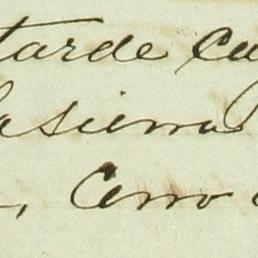 tarde cu
la sierra
, Cerro